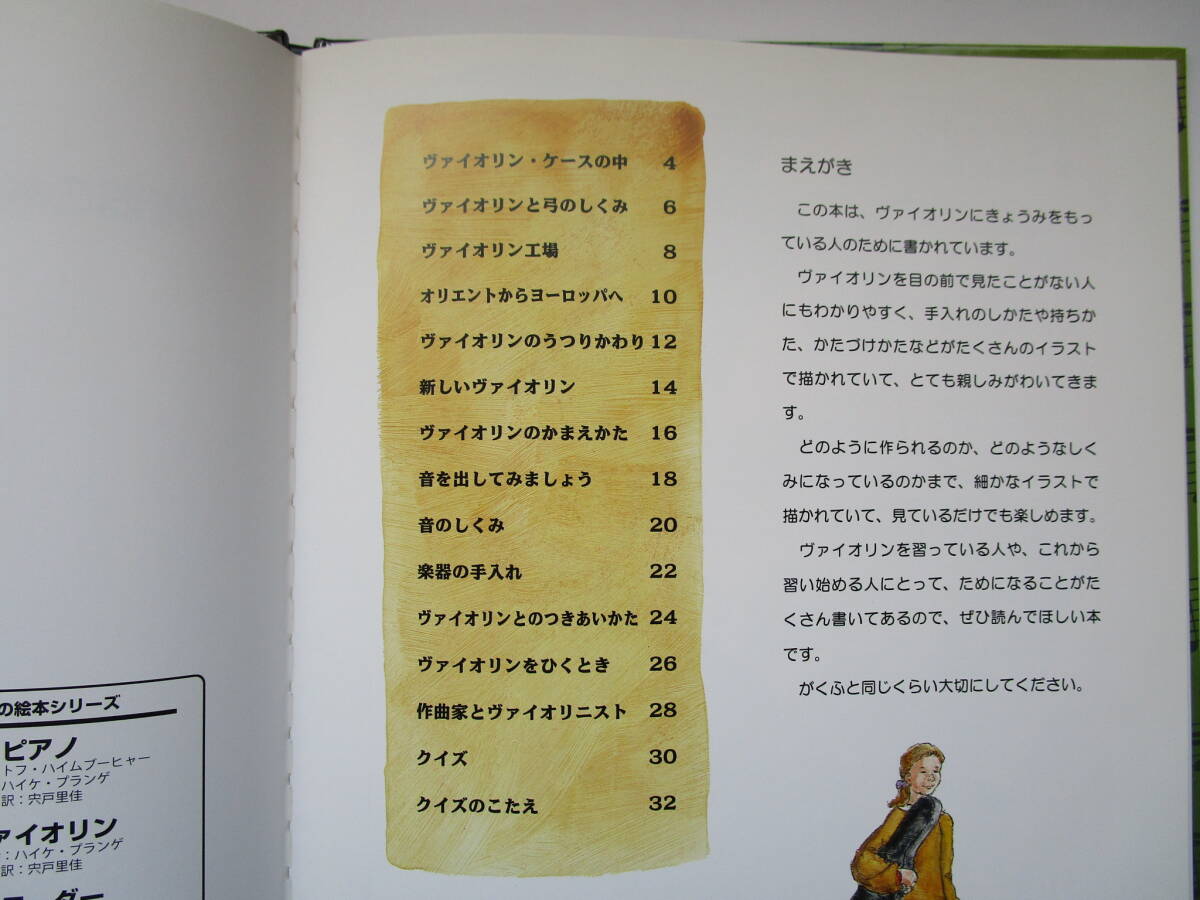 の絵本シリーズ
ピアノ
トフ・ハイムブーヒャー
ハイケ・プランゲ
訳:宍戸里佳
ァイオリン
:ハイケ・プランゲ
訳:宍戸里佳
ーダー
ヴァイオリン・ケースの中 4
ヴァイオリンと弓のしくみ 6
ヴァイオリン工場 8
オリエントからヨーロッパへ 10
ヴァイオリンのうつりかわり 12
新しいヴァイオリン 14
ヴァイオリンのかまえかた 16
音を出してみましょう 18
音のしくみ 20
楽器の手入れ 22
ヴァイオリンとのつきあいかた 24
ヴァイオリンをひくとき 26
作曲家とヴァイオリニスト 28
クイズ 30
クイズのこたえ 32
まえがき
この本は、ヴァイオリンにきょうみをもっ
ている人のために書かれています。
ヴァイオリンを目の前で見たことがない人
にもわかりやすく、手入れのしかたや持ちか
た、かたづけかたなどがたくさんのイラスト
で描かれていて、とても親しみがわいてきま
す。
どのように作られるのか、どのようなしく
みになっているのかまで、細かなイラストで
描かれていて、見ているだけでも楽しめます。
ヴァイオリンを習っている人や、これから
習い始める人にとって、ためになることがた
くさん書いてあるので、ぜひ読んでほしい本
です。
がくふと同じくらい大切にしてください。